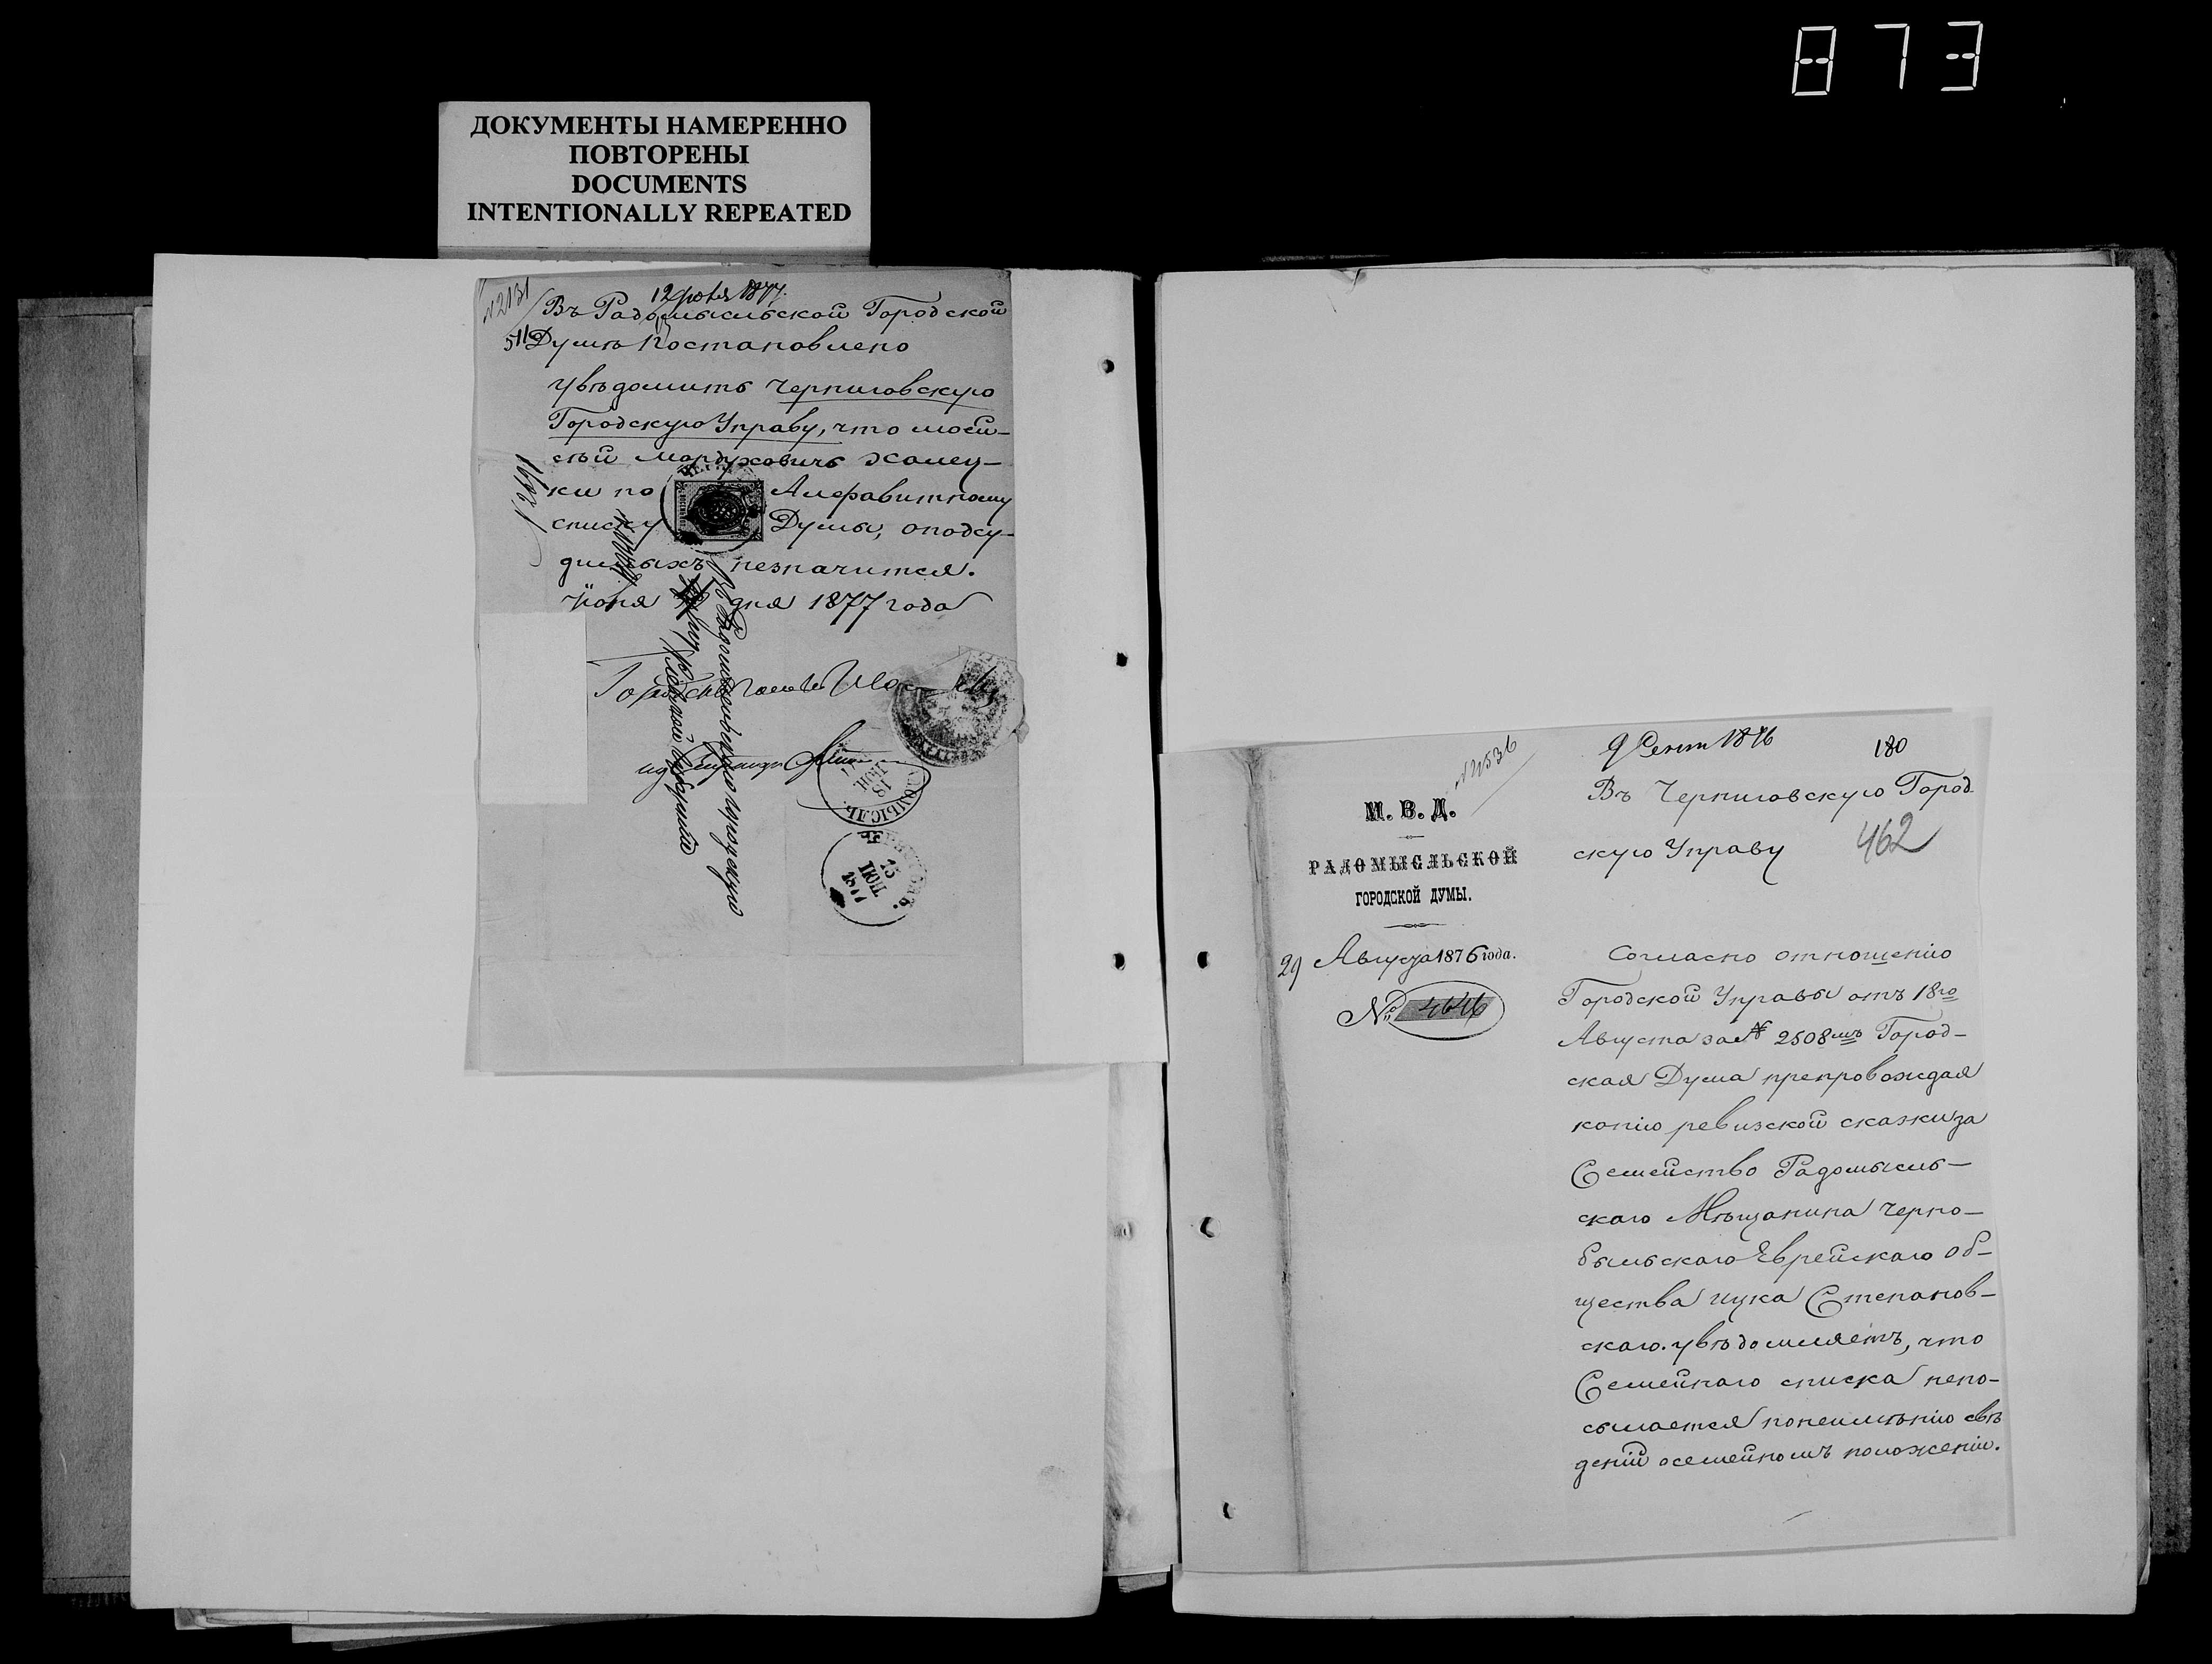 873
ДОКУМЕНТЫ НАМЕРЕННО
ПОВТОРЕНЫ
DOCUMENTS
INTENTIONALLY REPEATED
№2131
12 Іюня 1877.
Въ Радомысльской Городской
511 Думѣ Постановлено
увѣдомить Черниговскую
Городскую Управу, что Мось-
Мордуховичъ Хомец-
ки по Алфавитному
списку Думы, о подсу-
димыхъ незначится.
Іюня дня 1877 года
Городской Голова
ид Секретаря
Въ Радомысльскую Городскую
18
ІЮН.
ОМЫСЛЬ.
13
ІЮН
1877
9 Сент 1876
180
№ 2536
М. В. Д.
РАДОМЫСЛЬСКОЙ
ГОРОДСКОЙ ДУМЫ.
29 Августа 1876 года.
№
Въ Черниговскую Город
скую Управу
462
Согласно отношенію
Городской Управы отъ 18го
Августа за № 2508мъ Город-
ская Дума препровождая
копію ревизской сказки за
Семейство Радомысль-
скаго Мѣщанина Черно-
быльскаго Еврейскаго об-
щества Ицка Степанов-
скаго. увѣдомляетъ, что
Семейнаго списка непо-
сылается понеимѣнію свѣ
деній осемейномъ положеніи.